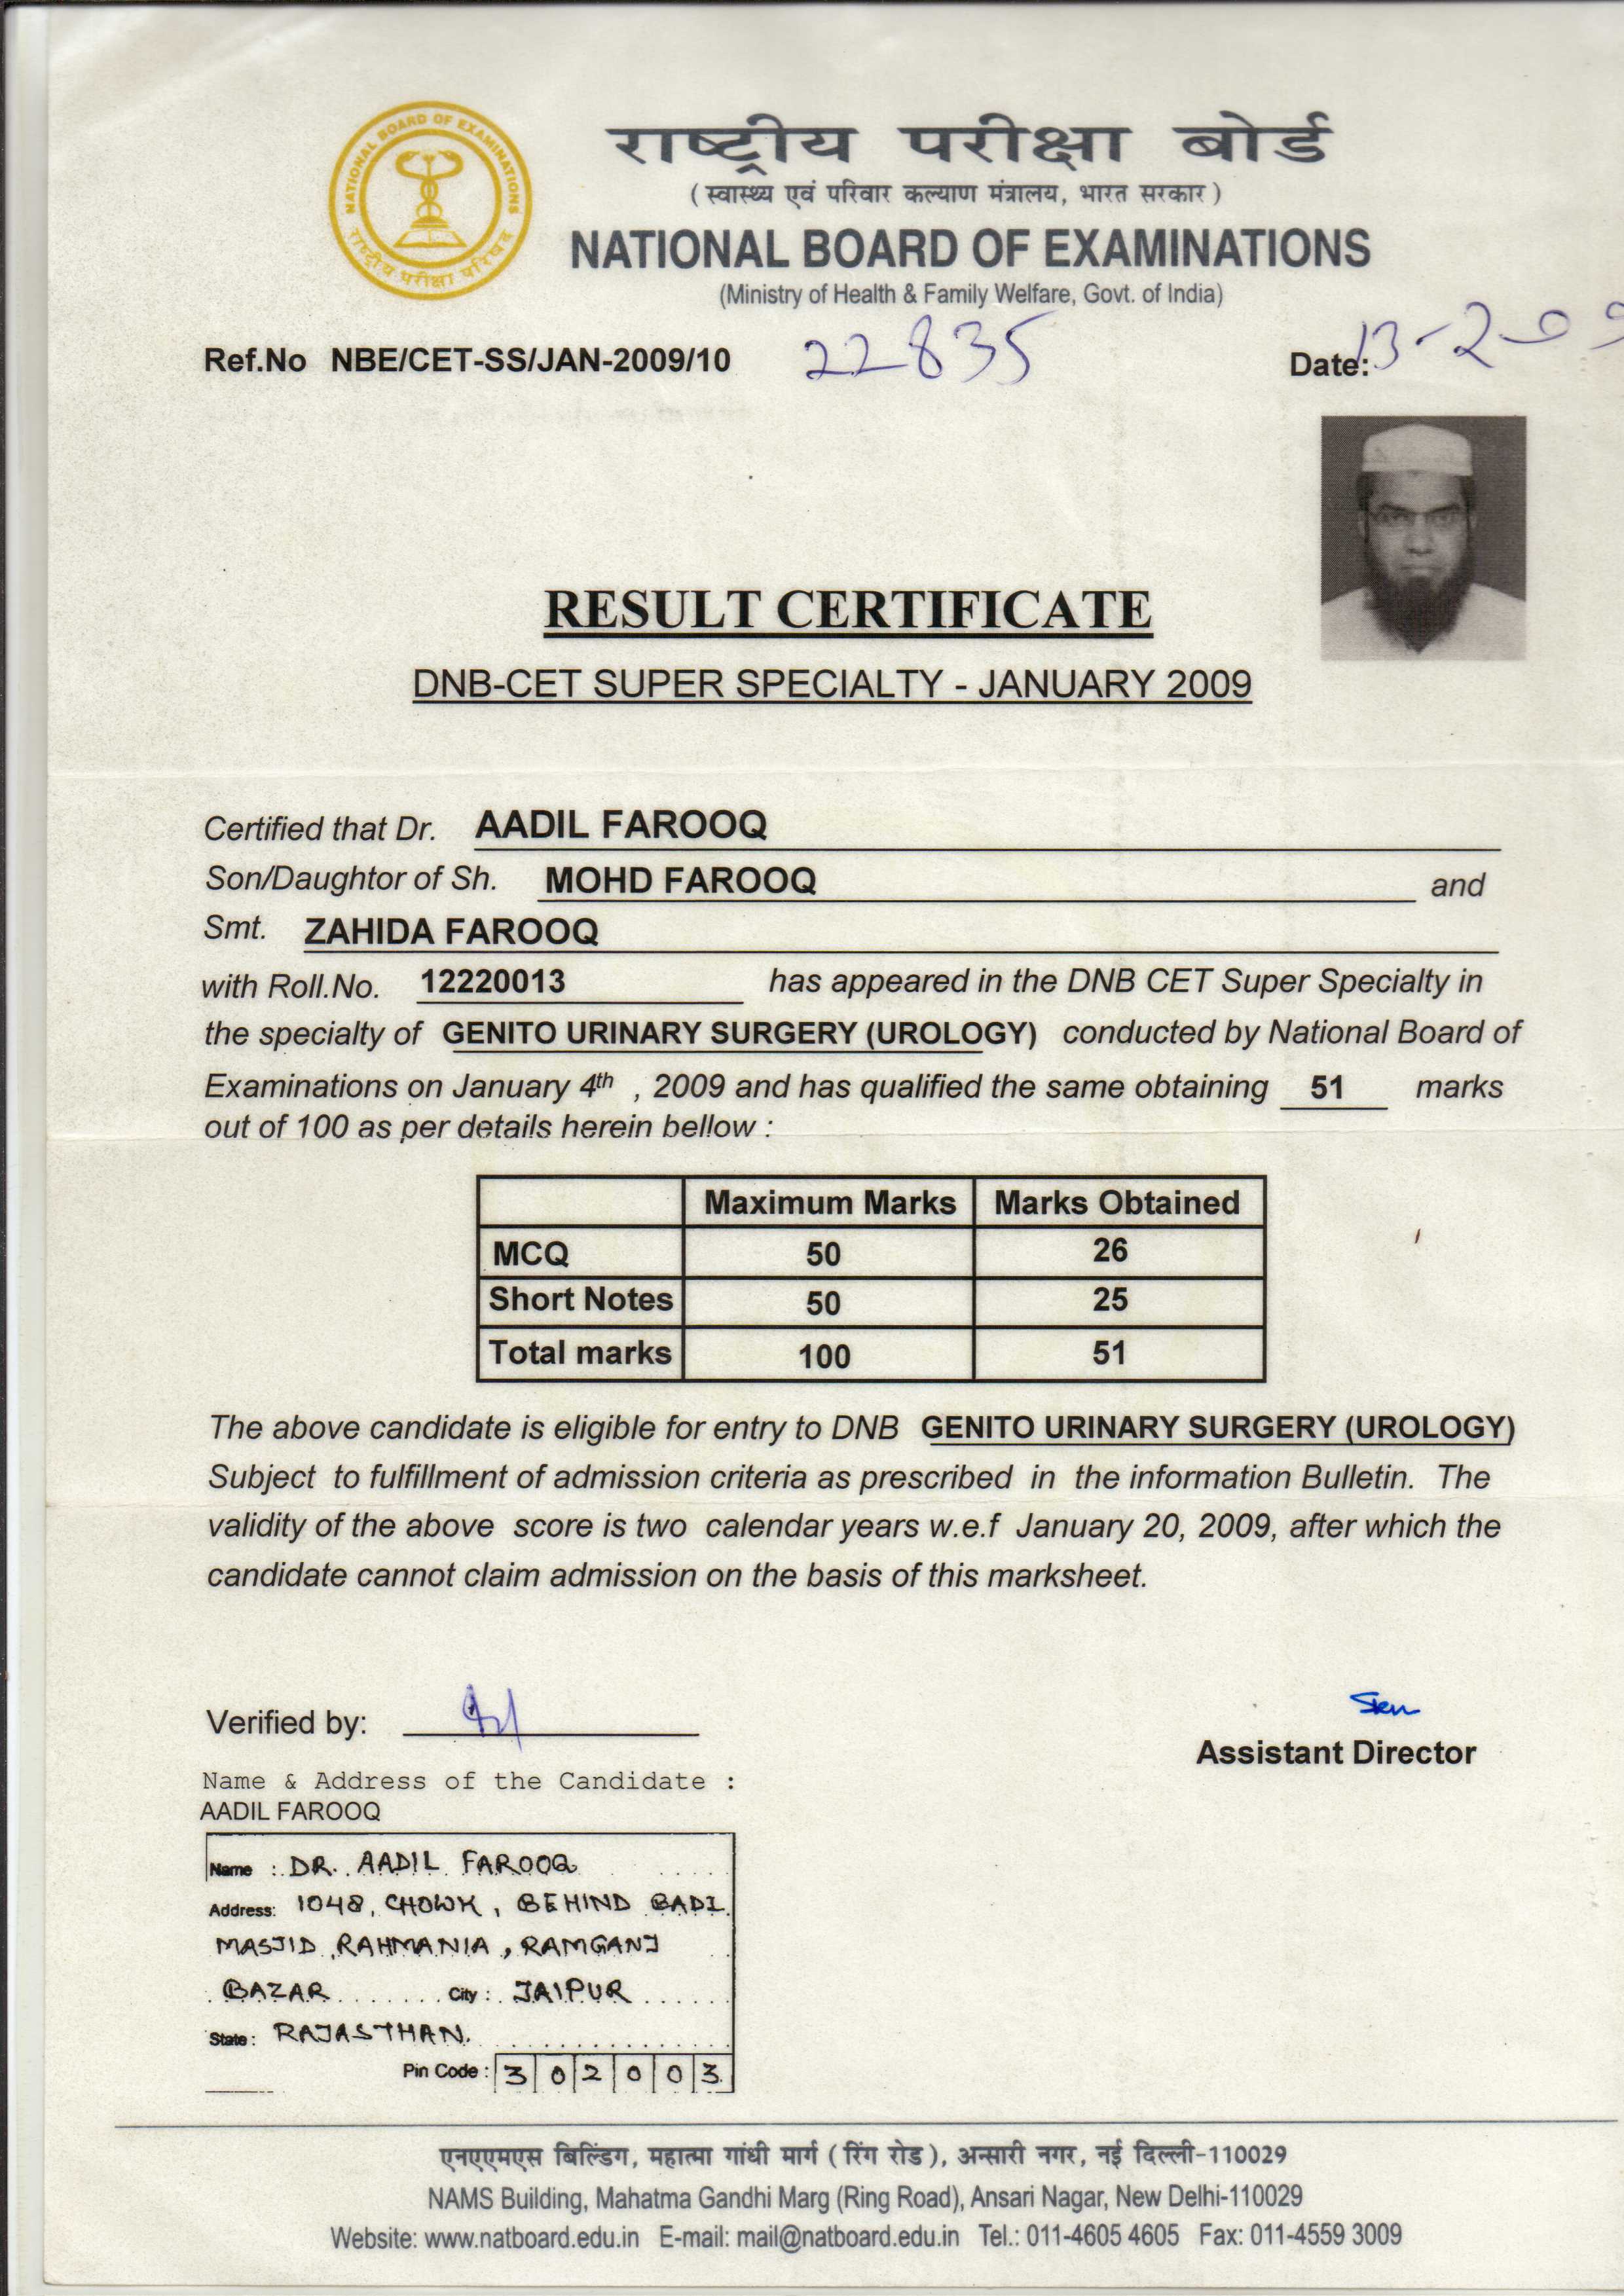 NATIONAL BOARD OF EXAMINATIONS
राष्ट्रीय परीक्षा परिषद
राष्ट्रीय परीक्षा बोर्ड
( स्वास्थ्य एवं परिवार कल्याण मंत्रालय, भारत सरकार )
NATIONAL BOARD OF EXAMINATIONS
(Ministry of Health & Family Welfare, Govt. of India)
Ref.No NBE/CET-SS/JAN-2009/10 22835 Date:
RESULT CERTIFICATE
DNB-CET SUPER SPECIALTY - JANUARY 2009
Certified that Dr. AADIL FAROOQ
Son/Daughtor of Sh. MOHD FAROOQ and
Smt. ZAHIDA FAROOQ
with Roll.No. 12220013 has appeared in the DNB CET Super Specialty in
the specialty of GENITO URINARY SURGERY (UROLOGY) conducted by National Board of
Examinations on January 4th , 2009 and has qualified the same obtaining 51 marks
out of 100 as per details herein bellow :
Maximum Marks Marks Obtained
MCQ 50 26
Short Notes 50 25
Total marks 100 51
The above candidate is eligible for entry to DNB GENITO URINARY SURGERY (UROLOGY)
Subject to fulfillment of admission criteria as prescribed in the information Bulletin. The
validity of the above score is two calendar years w.e.f January 20, 2009, after which the
candidate cannot claim admission on the basis of this marksheet.
Verified by:
Assistant Director
Name & Address of the Candidate :
AADIL FAROOQ
Name : DR. AADIL FAROOQ
Address: 1048, CHOWK, BEHIND BADI
MASJID RAHMANIA, RAMGANJ
BAZAR City : JAIPUR
State : RAJASTHAN.
Pin Code : 302003
एनएएमएस बिल्डिंग, महात्मा गांधी मार्ग ( रिंग रोड ), अन्सारी नगर, नई दिल्ली-110029
NAMS Building, Mahatma Gandhi Marg (Ring Road), Ansari Nagar, New Delhi-110029
Website: www.natboard.edu.in E-mail: mail@natboard.edu.in Tel.: 011-4605 4605 Fax: 011-4559 3009